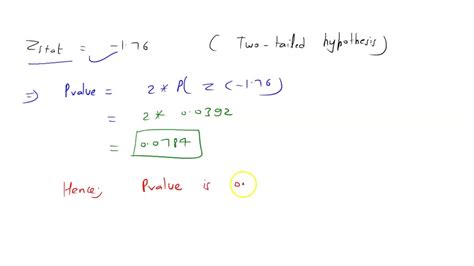 Zstat = -1.76 ( Two-tailed hypothesis )
⇒ Pvalue = 2 * P( Z < -1.76 )
= 2 * 0.0392
= 0.0784
Hence; Pvalue is 0.